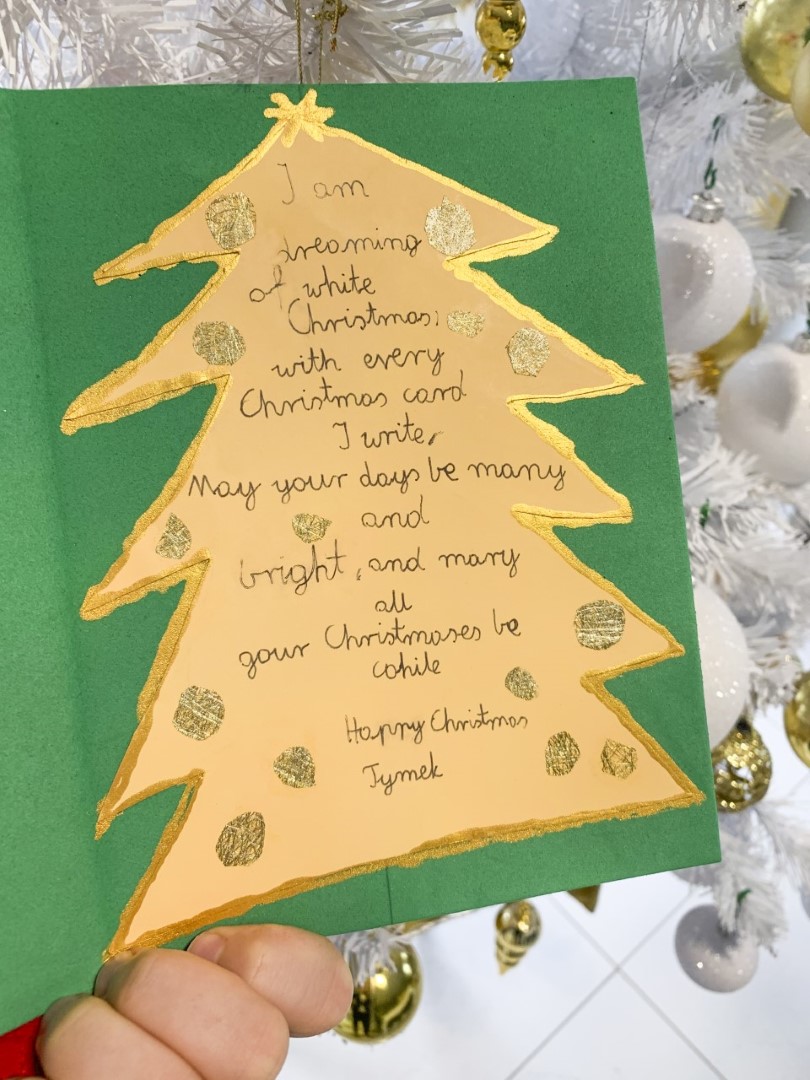 I am
dreaming
of white
Christmas,
with every
Christmas card
I write,
May your days be many
and
bright, and mary
all
gour Christmases be
cohile
Happy Christmas
Tymek